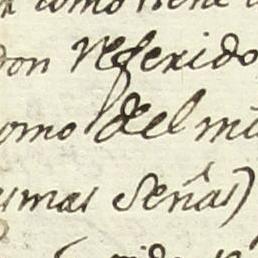 como tiene
don referido
como de el mi
mas señas)